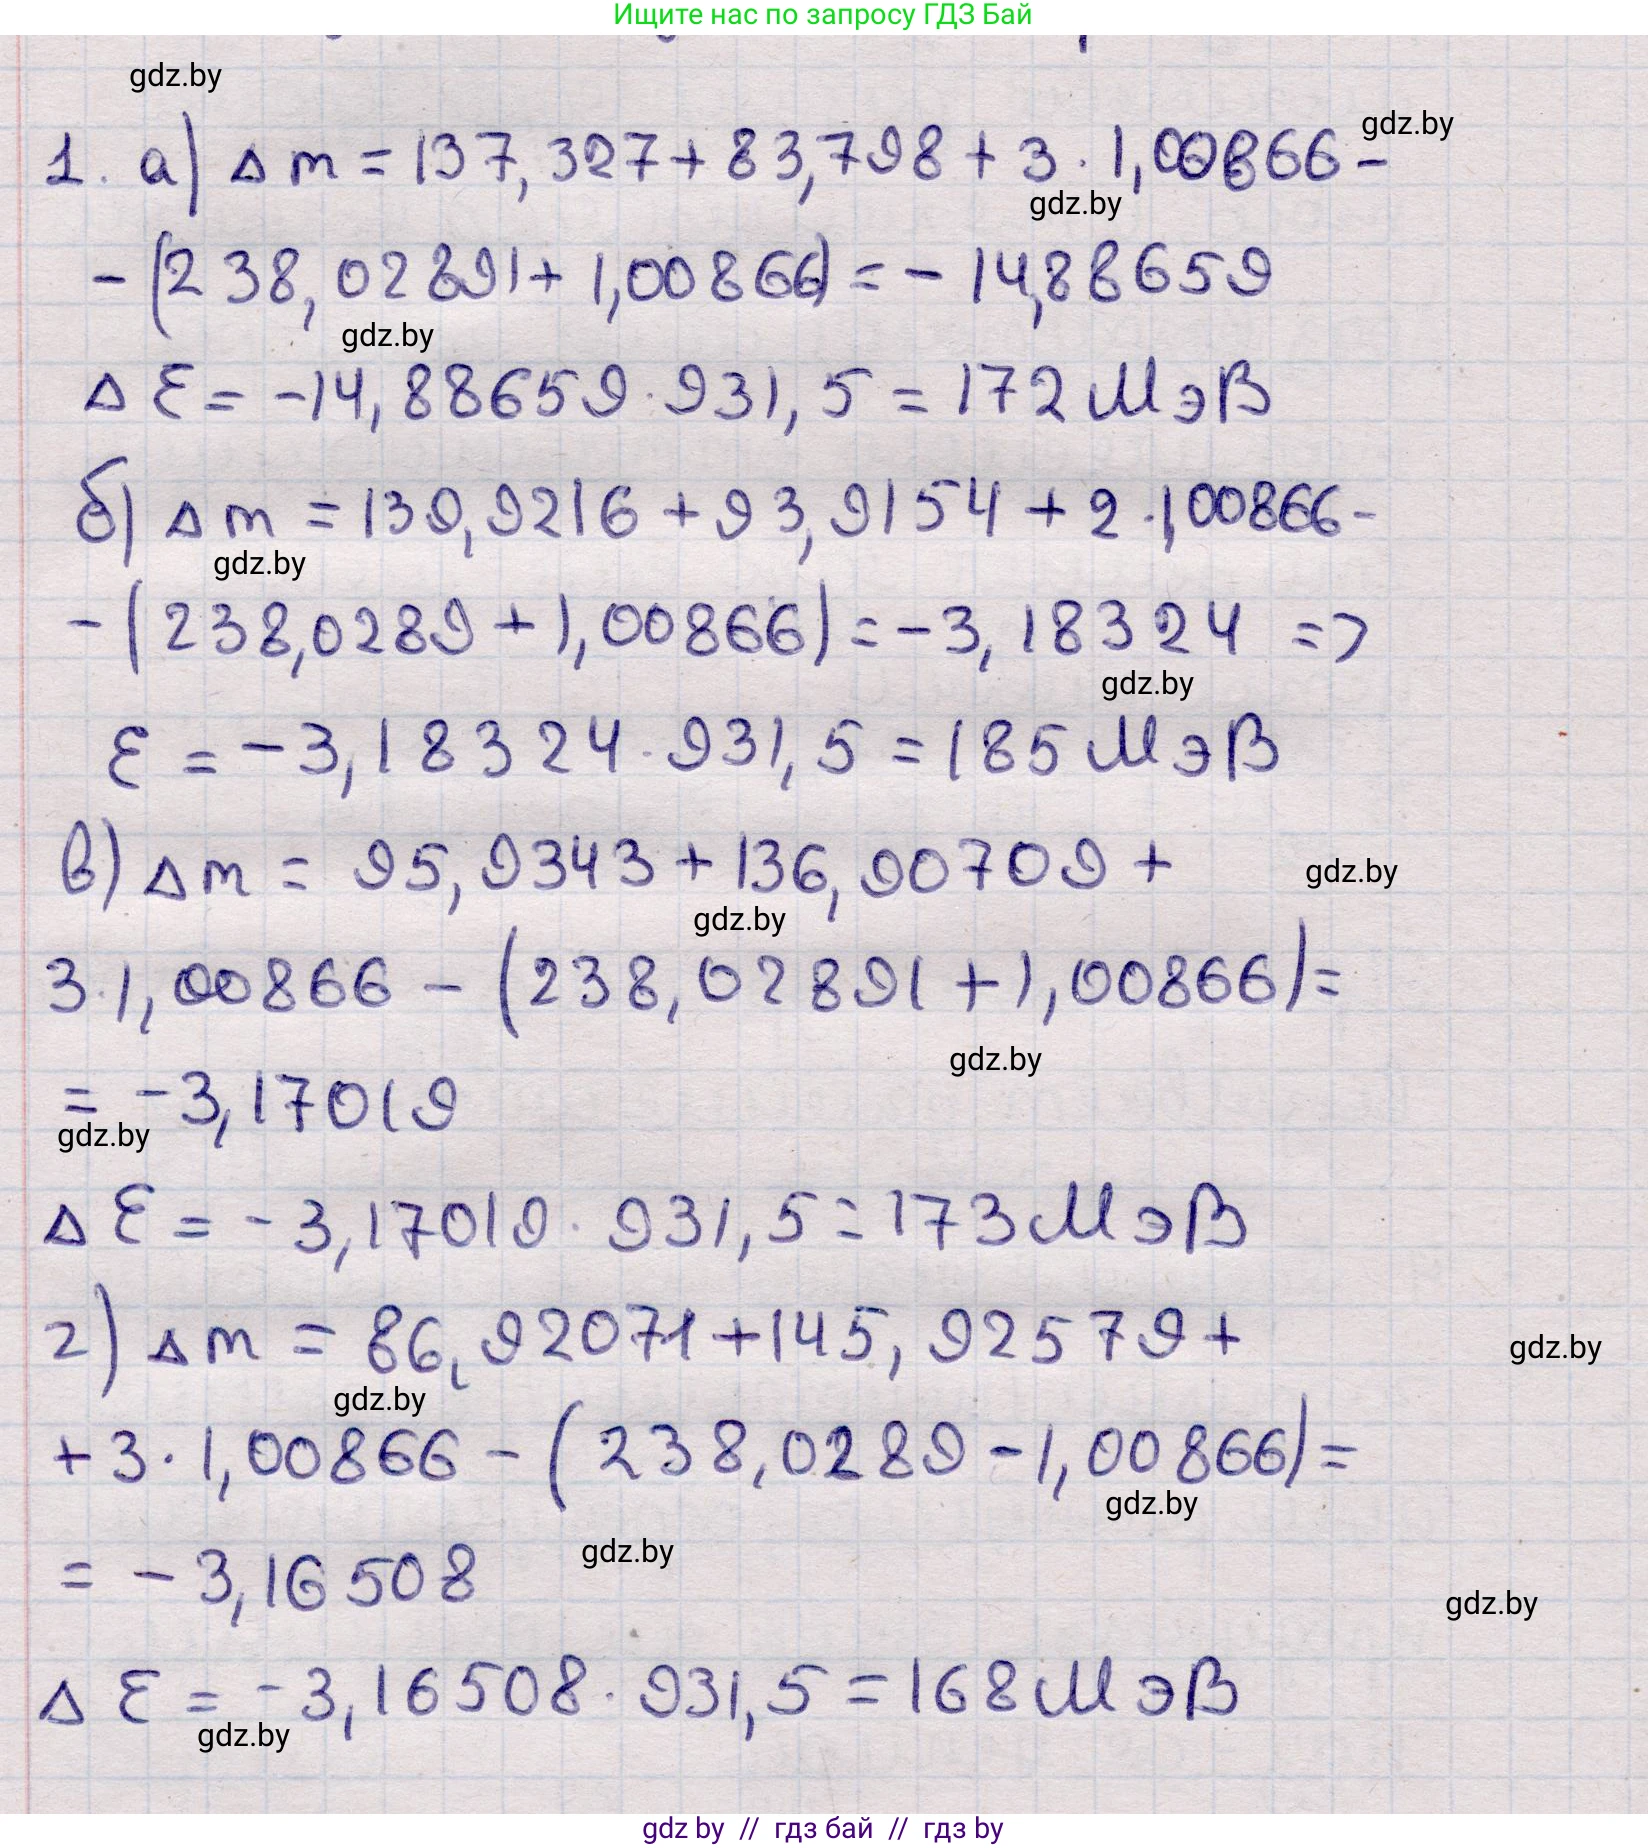 Ищите нас по запросу ГДЗ Бай
gdz.by
1. а) Δm = 137,327 + 83,798 + 3 · 1,00866 -
gdz.by
gdz.by
- (238,02891 + 1,00866) = - 14,88659
gdz.by
Δ Ɛ = -14,88659 · 931,5 = 172 МэВ
б) Δm = 139,9216 + 93,9154 + 2 · 1,00866 -
gdz.by
- (238,0289 + 1,00866) = -3,18324 =>
gdz.by
Ɛ = -3,18324 · 931,5 = 185 МэВ
в) Δm = 95,9343 + 136,90709 +
gdz.by
gdz.by
3 · 1,00866 - (238,02891 + 1,00866) =
gdz.by
= -3,17019
gdz.by
Δ Ɛ = -3,17019 · 931,5 = 173 МэВ
г) Δm = 86,92071 + 145,92579 +
gdz.by
gdz.by
+ 3 · 1,00866 - (238,0289 - 1,00866) =
gdz.by
= -3,16508
gdz.by
gdz.by
Δ Ɛ = -3,16508 · 931,5 = 168 МэВ
gdz.by
gdz by // гдз бай // гдз by